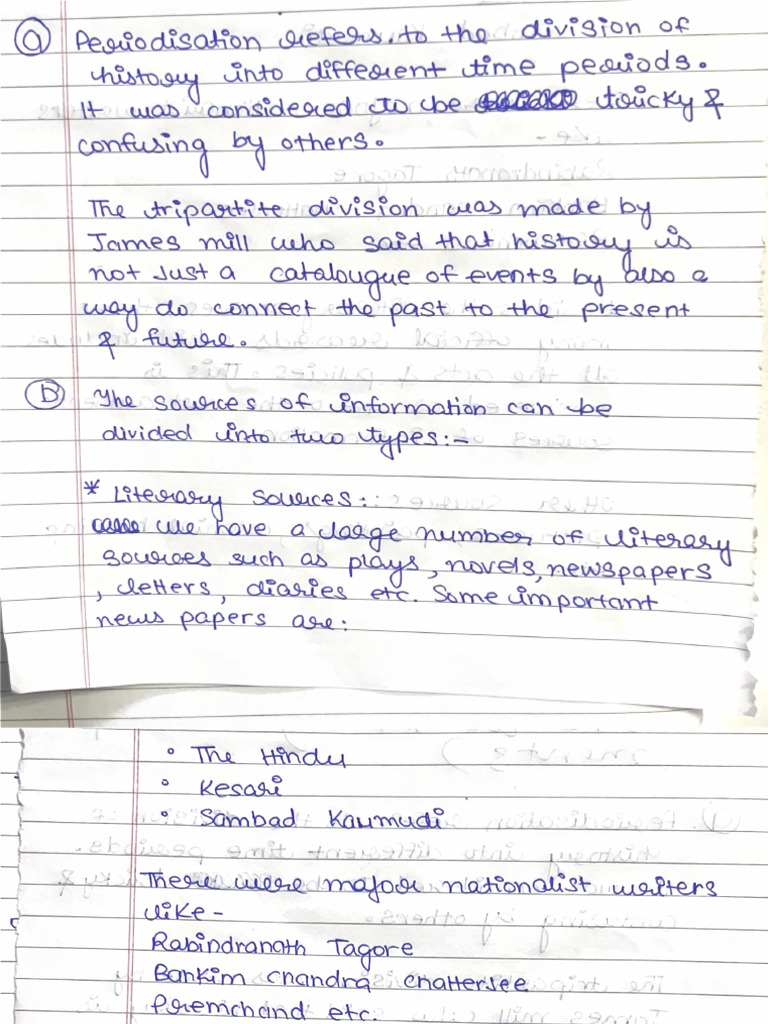 a Periodisation refers to the division of
history into different time periods.
It was considered to be tricky &
confusing by others.
The tripartite division was made by
James mill who said that history is
not just a catalougue of events by also a
way do connect the past to the present
& future.
b The sources of information can be
divided into two types:-
* Literary sources:
we have a large number of literary
sources such as plays, novels, newspapers
, letters, diaries etc. Some important
news papers are:
• The Hindu
• Kesari
• Sambad Kaumudi
There were major nationalist writers
like -
Rabindranath Tagore
Bankim Chandra Chatterjee
Premchand etc.